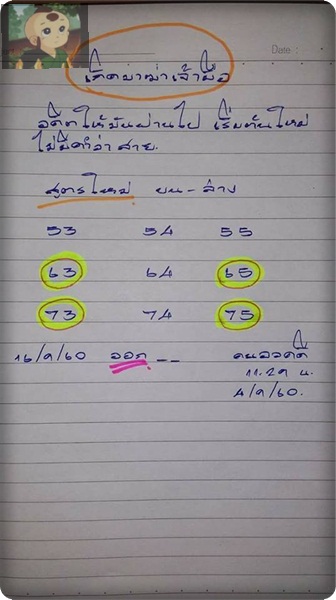 Date :
เด็ดมาฆ่าเจ้ามือ
อดีตให้มันผ่านไป เริ่มต้นใหม่
ไม่มีคำว่า สาย.
สูตรใหม่ บน - ล่าง
53 54 55
63 64 65
73 74 75
16/9/60 ออก _ _ คนอวดดี
11.29 น.
4/9/60.